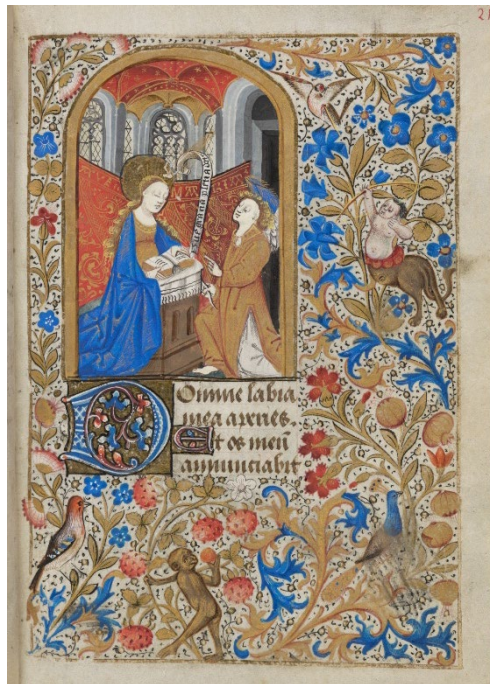 21
aue maria
Domine labia
mea aperies.
Et os meū
annunciabit